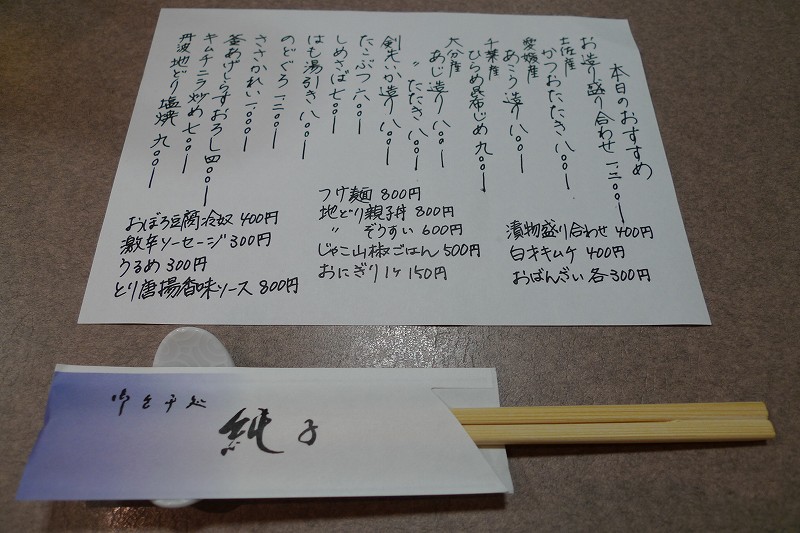 本日のおすすめ
お造り盛り合わせ 一、二〇〇ー
土佐産
かつおたたき 八〇〇ー
愛媛産
あこう造り 八〇〇ー
千葉産
ひらめ昆布じめ 九〇〇ー
大分産
あじ造り 八〇〇ー
〃 たたき 八〇〇ー
剣先いか造り 八〇〇ー
たこぶつ 六〇〇ー
しめさば 七〇〇ー
はも湯引き 八〇〇ー
のどぐろ 一、二〇〇ー
ささかれい 一、〇〇〇ー
釜あげしらすおろし 四〇〇ー
キムチニラ炒め 七〇〇ー
丹波地どり塩焼 九〇〇ー
おぼろ豆腐冷奴 400円
激辛ソーセージ 300円
うるめ 300円
とり唐揚香味ソース 800円
つけ麺 800円
地どり親子丼 800円
〃 ぞうすい 600円
じゃこ山椒ごはん 500円
おにぎり 1ケ 150円
漬物盛り合わせ 400円
白才キムチ 400円
おばんざい 各300円
純子